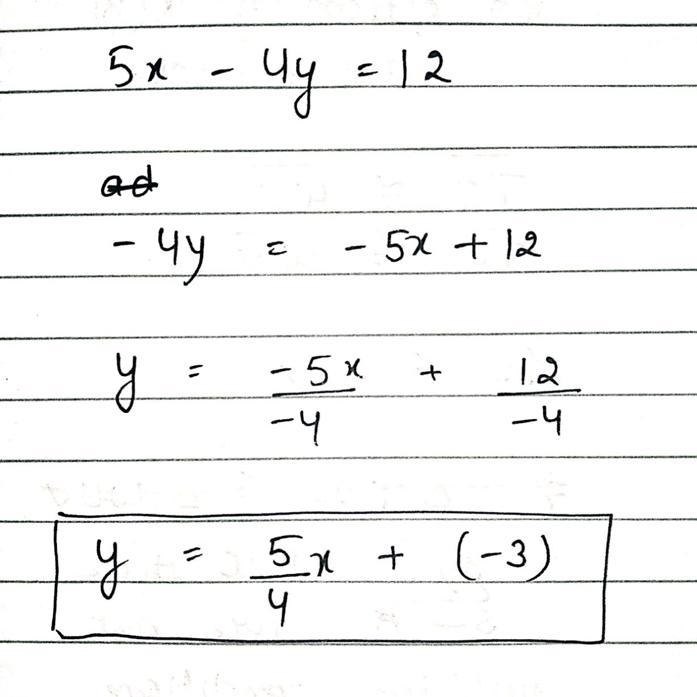 5x - 4y = 12
ad
- 4y = - 5x + 12
y = -5x/-4 + 12/-4
y = 5/4 x + (-3)